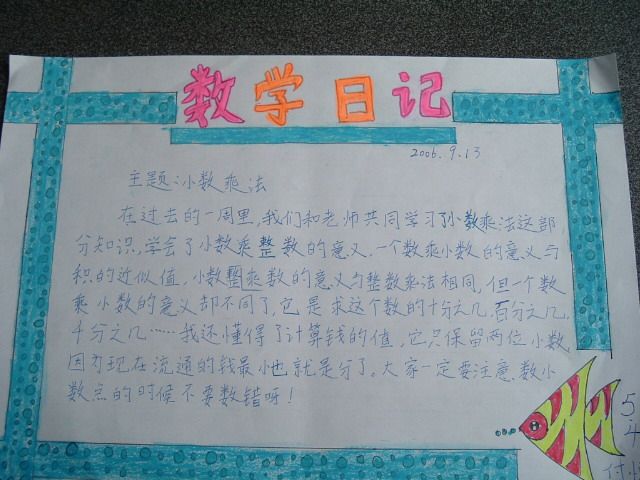 数学日记
2006.9.13
主题:小数乘法
在过去的一周里,我们和老师共同学习了小数乘法这部
分知识,学会了小数乘整数的意义.一个数乘小数的意义与
积的近似值,小数整乘数的意义与整数乘法相同,但一个数
乘小数的意义却不同了,它是求这个数的十分之几,百分之几,
千分之几……我还懂得了计算钱的值,它只保留两位小数
因为现在流通的钱最小也就是分了。大家一定要注意,数小
数点的时候不要数错呀!
5
付